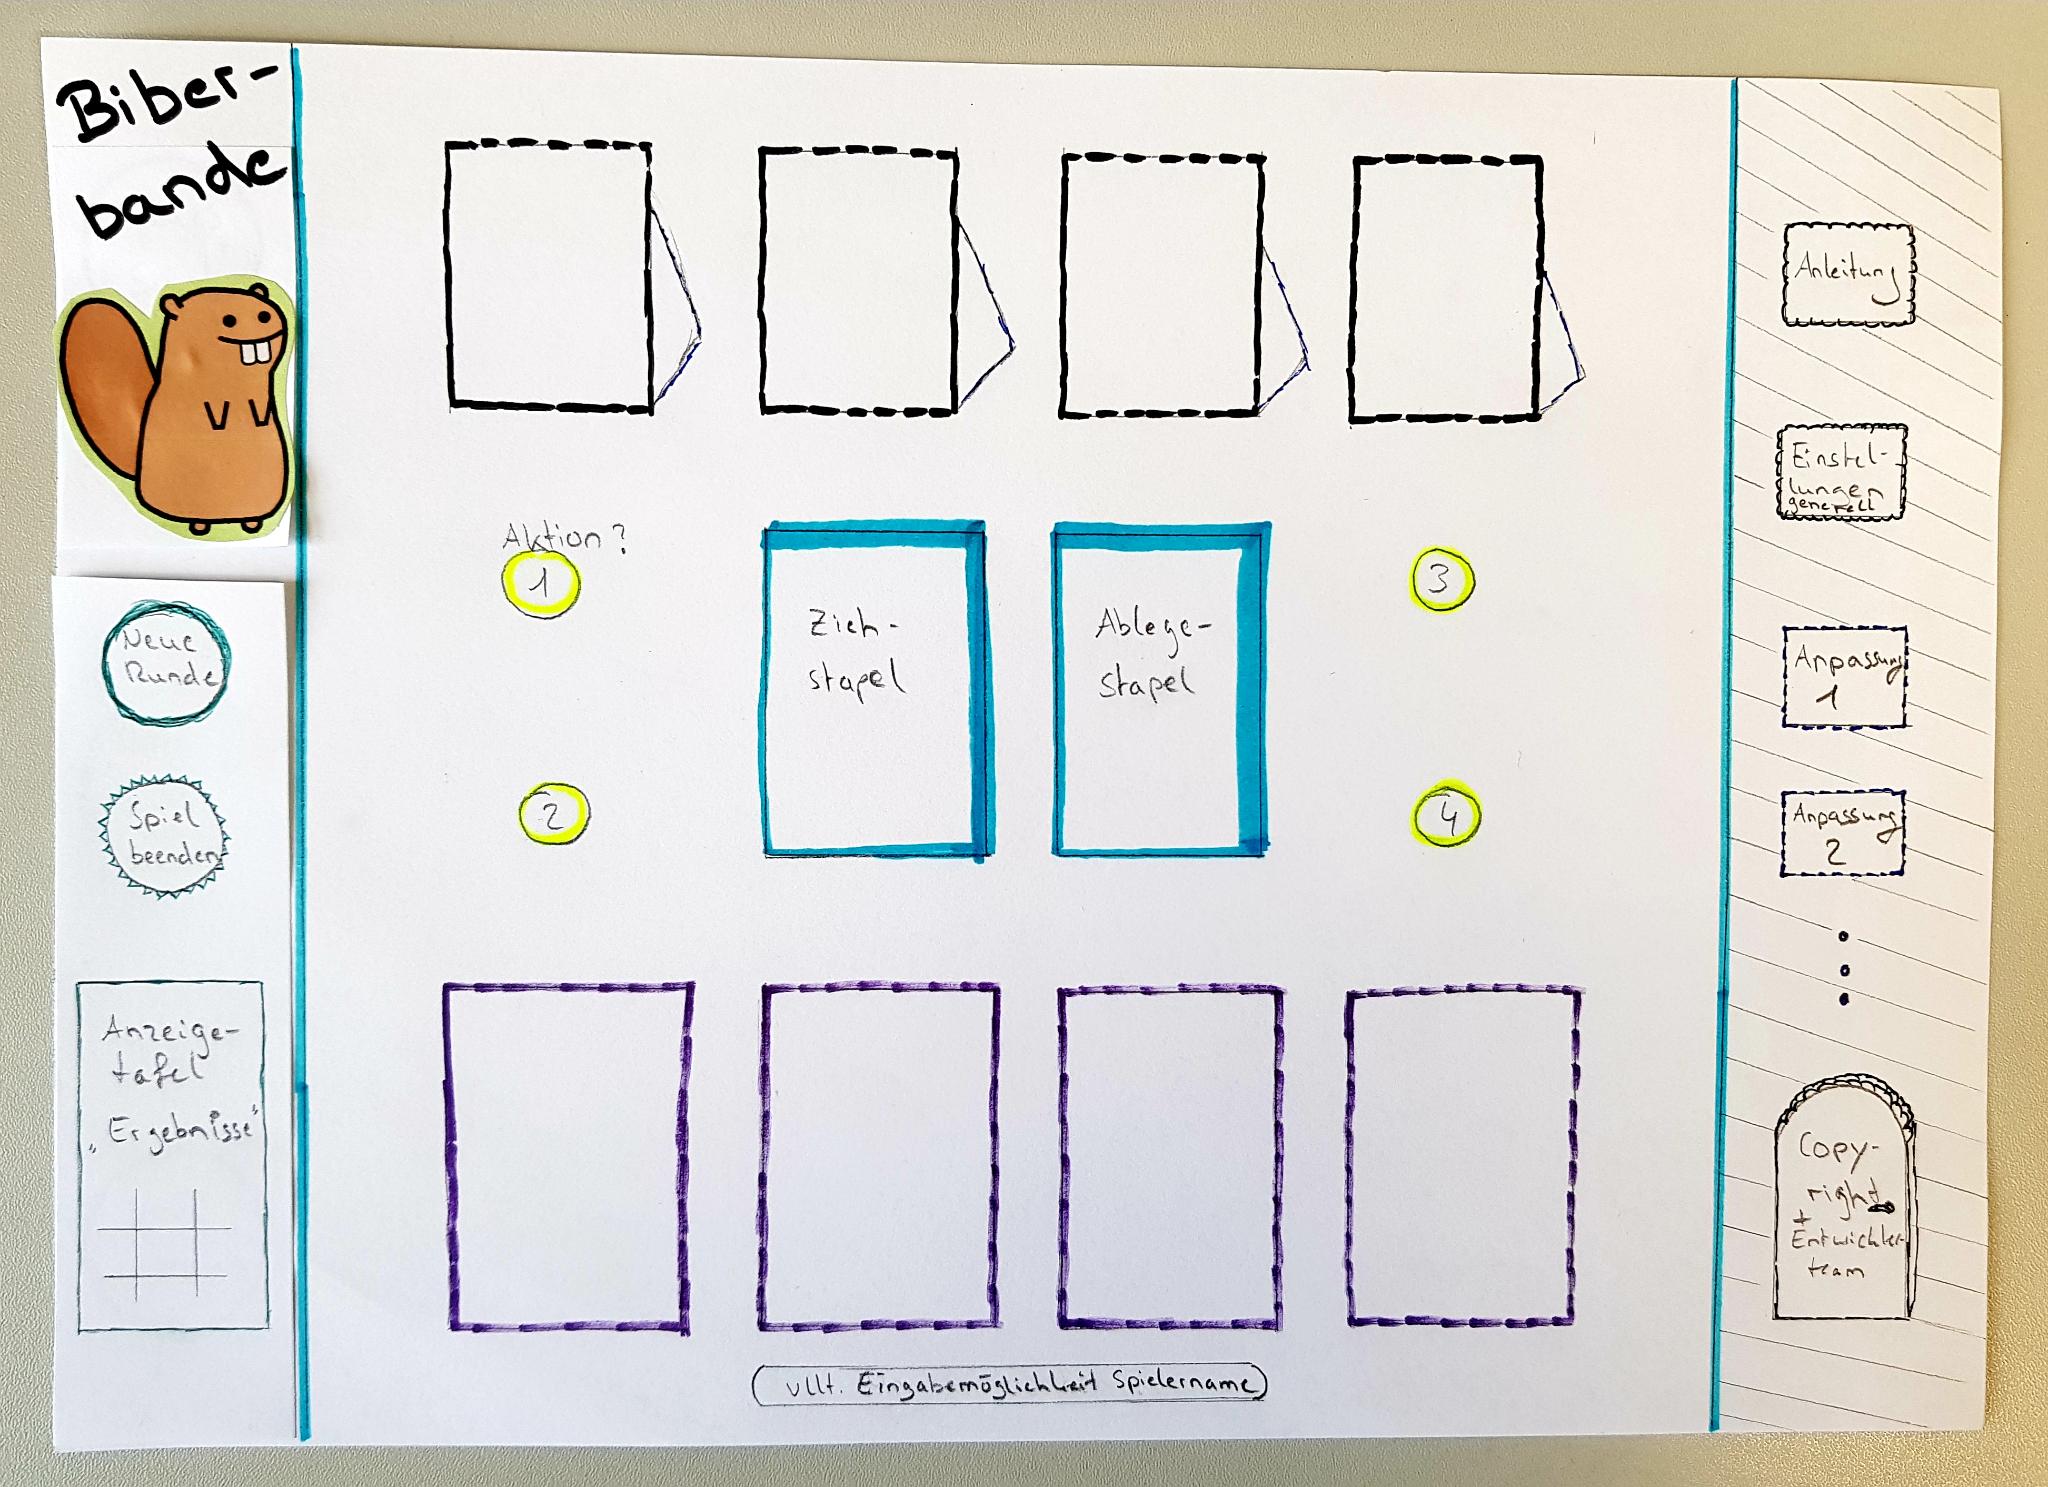 Biber-
bande
Neue
Runde
Spiel
beenden
Anzeige-
tafel
„Ergebnisse“
Aktion?
1
2
Zieh-
stapel
Ablege-
stapel
3
4
vllt. Eingabemöglichkeit Spielername
Anleitung
Einstel-
lungen
generell
Anpassung
1
Anpassung
2
Copy-
right
+
Entwickler-
team